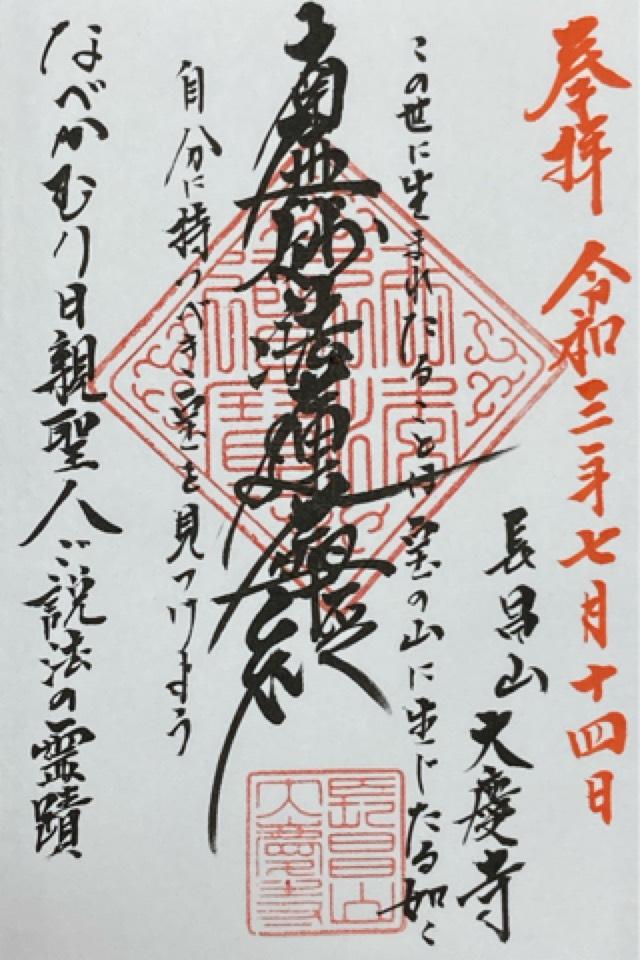 奉拝 令和三年七月十四日
長昌山 大慶寺
この世に生まれたることは宝の山に生じたる如く
南無妙法蓮華経
自分に持つべき宝を見つけましょう
なべかむり日親聖人ご説法の霊蹟
長昌山
大慶寺